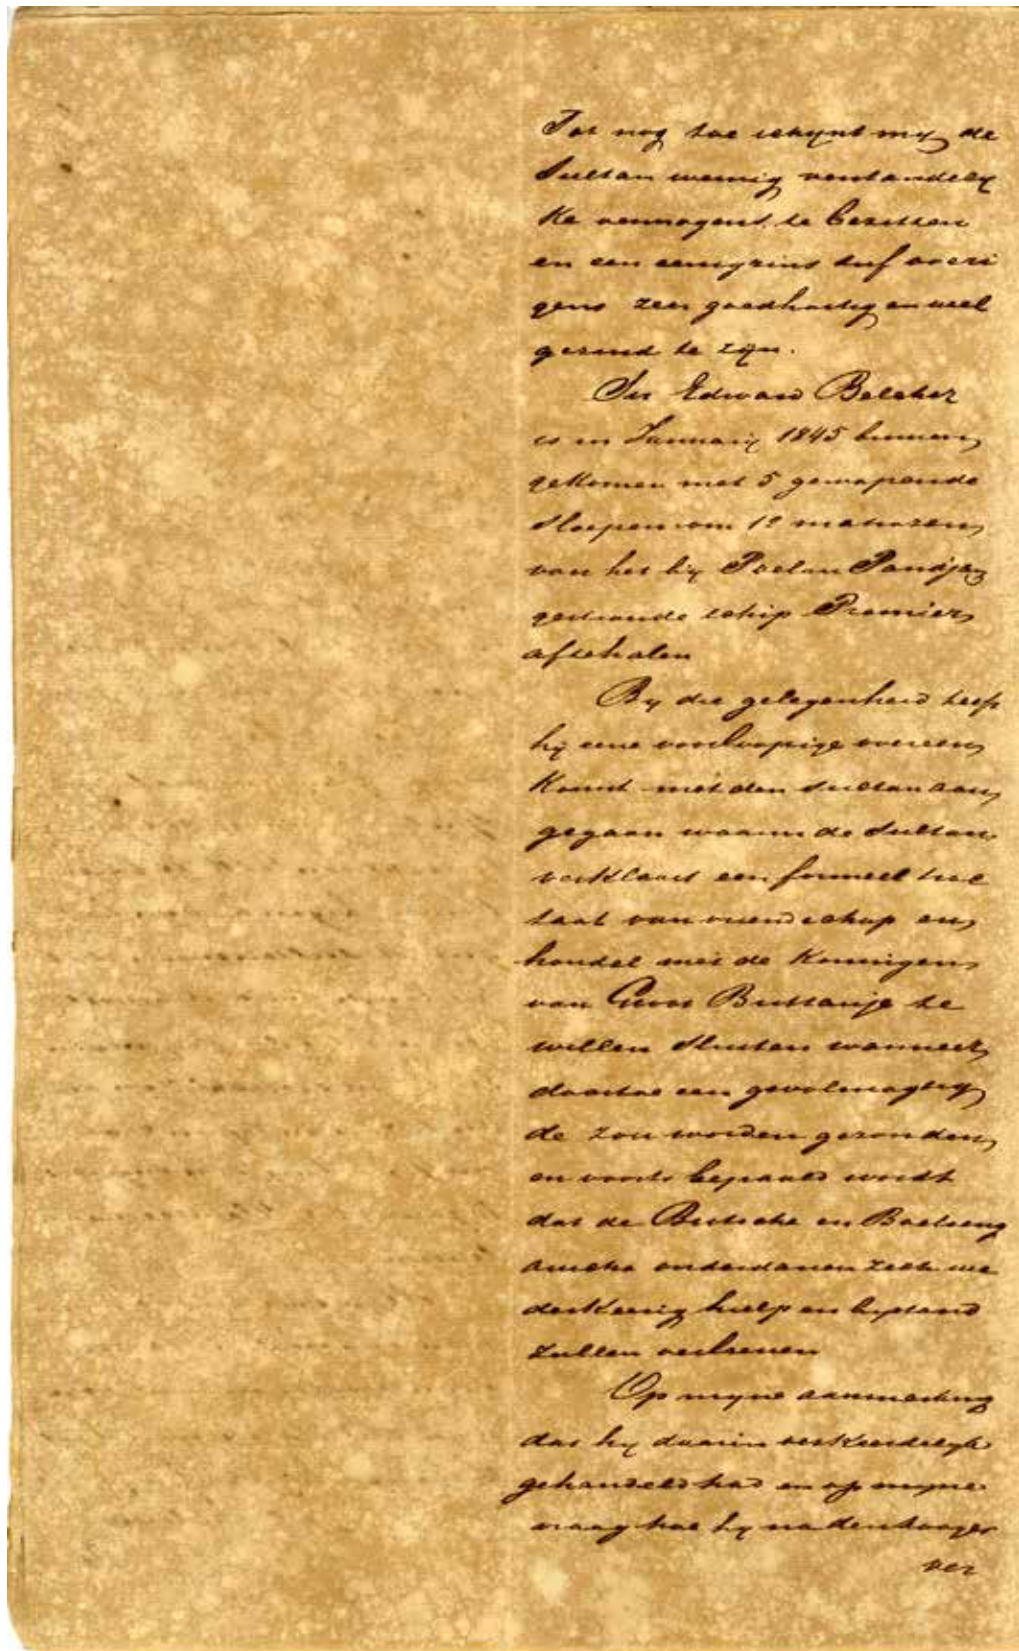 Tot nog toe schynt my de
Sultan weinig verstandely
Ke vermogens te bezitten
en een eenigzins suf overi
gens zeer goedhartig en wel
gezind te zijn.
Sir Edward Belcher
is in January 1845 binnen
gekomen met 5 gewapende
sloepen om 10 matrozen
van het by Poeloe Pandjang
gestrande schip Premier
aftehalen
By die gelegenheid heeft
hy eene voorloopige overeen
Komst met den Sultan aan
gegaan waarin de Sultan
verklaart een formeel trac
taat van vriendschap en
handel met de Koningin
van Groot Brittanje te
willen sluiten wanneer
daartoe een gevolmagtig
de zou worden gezonden
en voorts bepaald wordt
dat de Britsche en Boeloeng
ansche onderdanen zich we
derkeerig hulp en bystand
zullen verleenen
Op myne aanmerking
dat hy daarin verkeerdelyk
gehandeld had en op myne
vraag hoe hy na den
ver